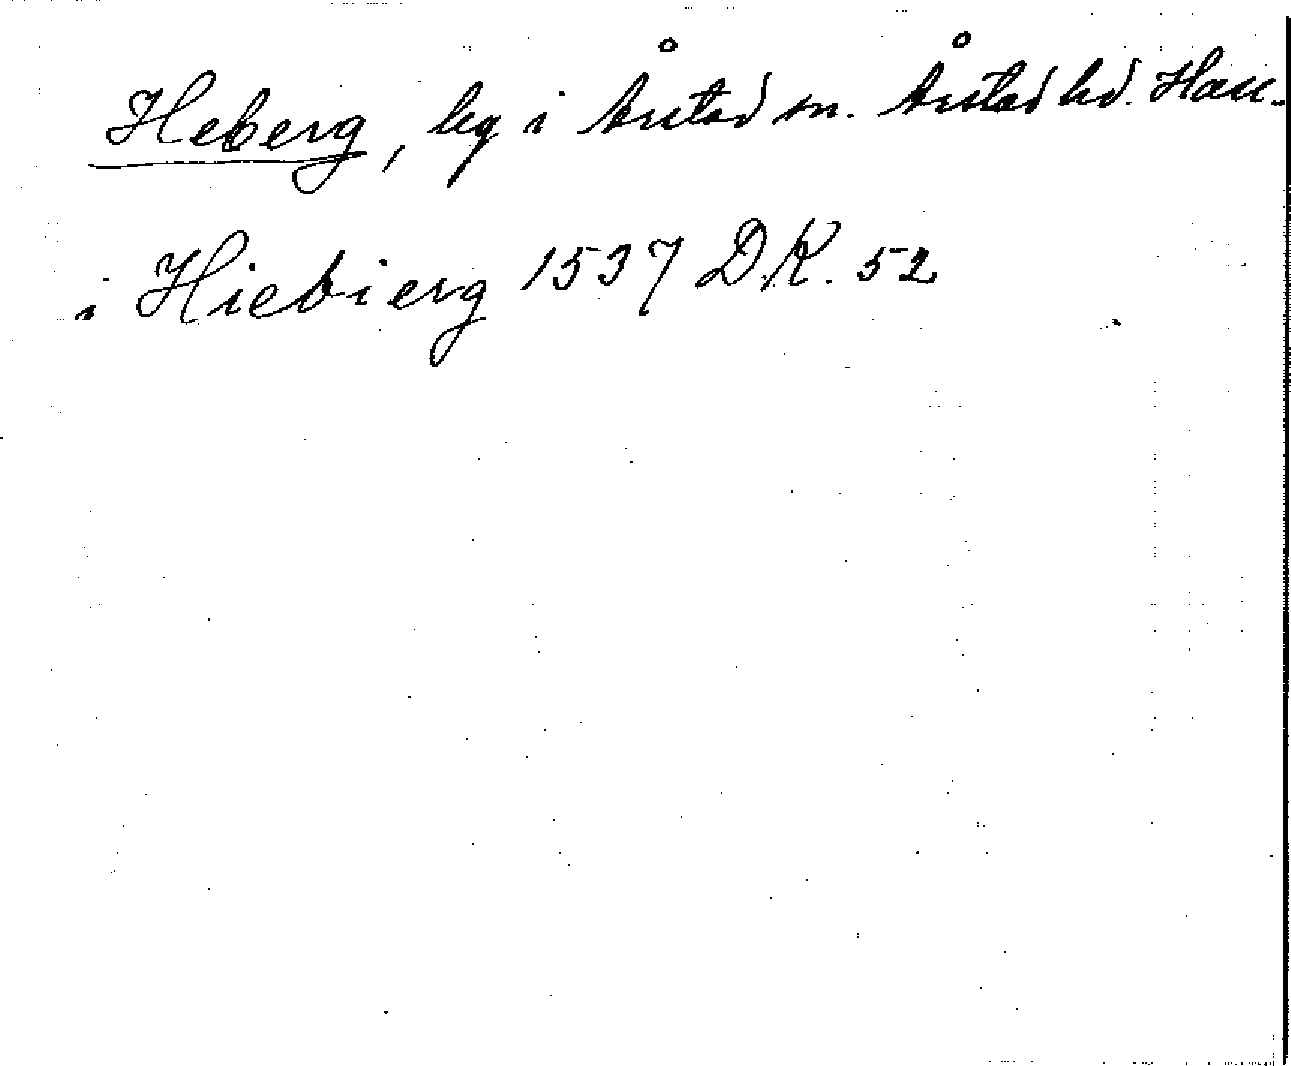 Heberg, by i Årstad sn. Årstad hd. Hall.
i Hiebierg 1537 D.K. 52